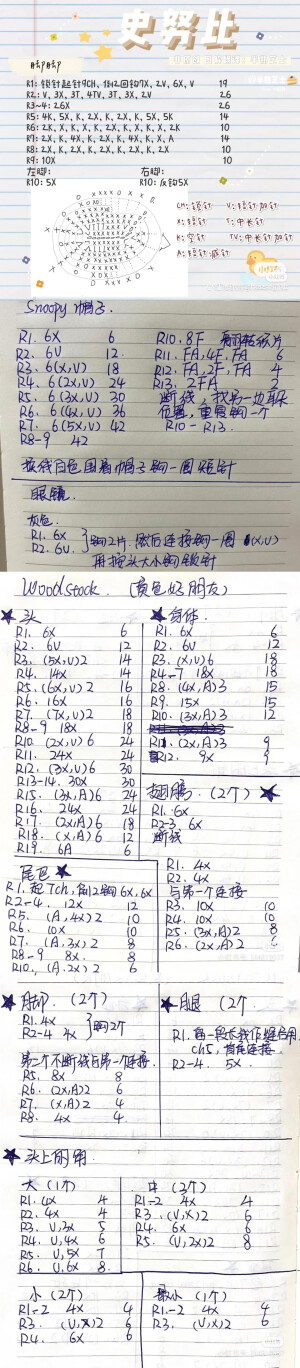 史努比
脚脚
R1: 锁针起针9CH, 倒2回钩7X, 2V, 6X, V 19
R2: V, 3X, 3T, 4TV, 3T, 3X, 2V 26
R3~4: 26X 26
R5: 4K, 5X, K, 2X, K, 2X, K, 5X, 5K 14
R6: 2K, X, K, X, K, 2X, K, X, K, X, 2K 10
R7: 2X, K, 4X, K, 2X, K, 4X, K, X, A 14
R8: 2X, K, 2X, K, 2X, K, 2X, K, 2X 10
R9: 10X 10
左脚: 右脚:
R10: 5X R10: 反钩5X
CH: 锁针 V: 短针加针
X: 短针 T: 中长针
K: 空针 TV: 中长针加针
A: 短针减针
Snoopy 帽子.
R1. 6X 6
R2. 6V 12
R3. 6(X,V) 18
R4. 6(2X,V) 24
R5. 6(3X,V) 30
R6. 6(4X,V) 36
R7. 6(5X,V) 42
R8-9 42
R10. 8F
R11. FA,4F,FA 6
R12. FA,2F,FA 4
R13. 2FA 2
断线, 找另一边耳朵
位置, 重复钩一个
R10-R13.
换线白色围着帽子钩一圈短针
眼镜.
灰色.
R1. 6X
R2. 6V.
钩2片. 然后连接钩一圈 6(X,V)
再按头大小钩锁针
Woodstock. (黄色好朋友)
★ 头
R1. 6X 6
R2. 6V 12
R3. (5X,V)2 14
R4. 14X 14
R5. (6X,V)2 16
R6. 16X 16
R7. (7X,V)2 18
R8-9 18X 18
R10. (2X,V)6 24
R11. 24X 24
R12. (3X,V)6 30
R13-14. 30X 30
R15. (3X,A)6 24
R16. 24X 24
R17. (2X,A)6 18
R18. (X,A)6 12
R19. 6A 6
★ 身体.
R1. 6X 6
R2. 6V 12
R3. (X,V)6 18
R4-7 18X 18
R8. (4X,A)3 15
R9. 15X 15
R10. (3X,A)3 12
R11. (2X,A)3 9
R12. 9X 9
翅膀. (2个) ★
R1. 6X
R2-3. 6X
断线
R1. 4X
R2. 4X
与第一个连接
R3. 10X 10
R4. 10X 10
R5. (3X,A)2 8
R6. (2X,A)2 6
尾巴 ★
R1. 起7ch, 倒2钩6X,6X
R2-4. 12X 12
R5. (A,4X)2 10
R6. 10X 10
R7. (A,3X)2 8
R8-9 8X. 8
R10. (A,2X)2 6
★ 脚 (2个)
R1. 4X
R2-4 4X
钩2个
第二个不断线与第一个连接.
R5. 8X 8
R6. (2X,A)2 6
R7. (X,A)2 4
R8. 4X 4.
★ 腿 (2个
ch5, 首尾连接.
R2-4. 5X.
★ 头上的角.
大 (1个)
R1. 4X 4
R2. 4X 4
R3. V,3X 5
R4. V,4X 6
R5. V,5X 7
R6. V,6X 8
中 (3个)
R1-2 4X 4
R3. (V,X)2 6
R4. 6X 6
R5. (V,2X)2 8
小 (2个)
R1-2 4X 4
R3. (V,X)2 6
R4. 6X 6
最小 (1个)
R1-2 4X 4
R3. (V,X)2 6